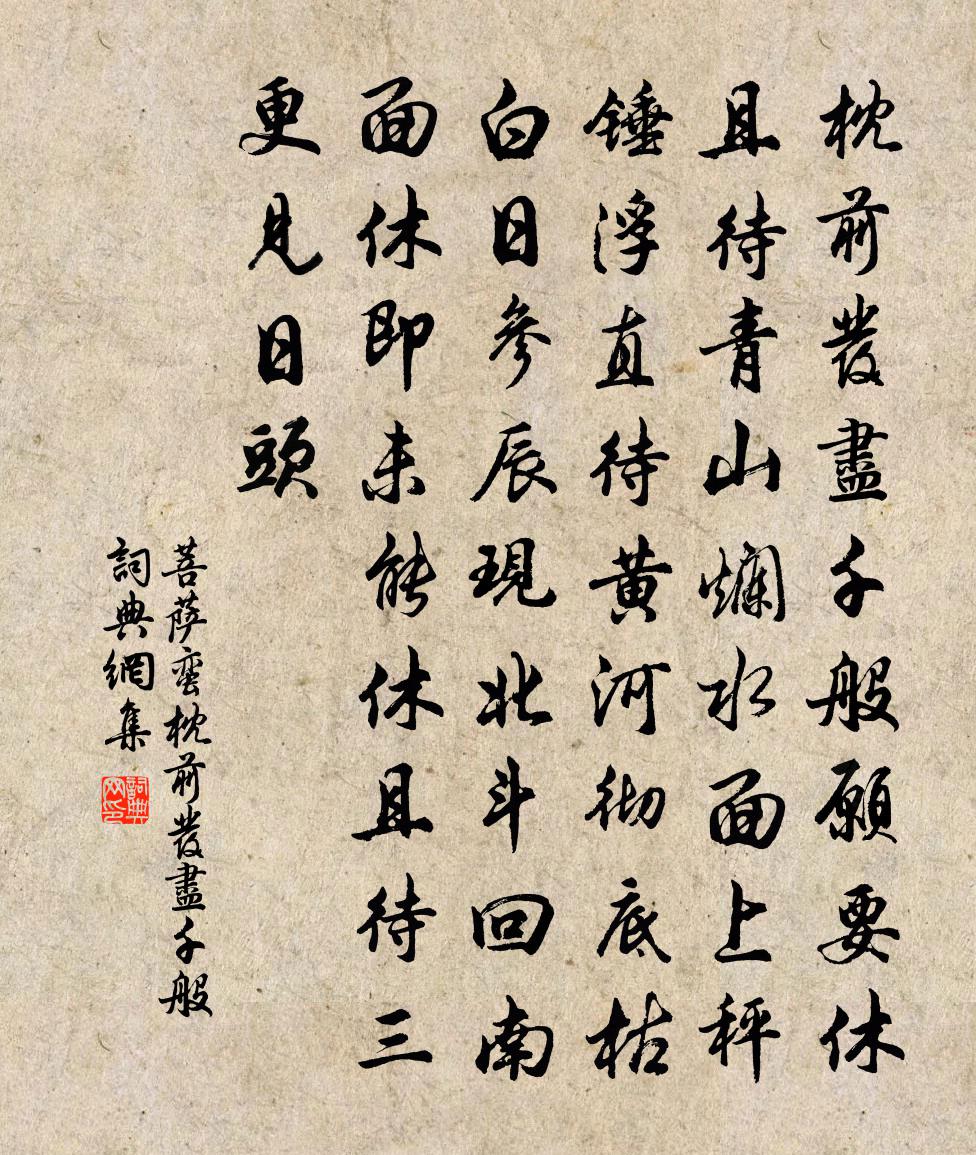 枕前發盡千般願要休
且待青山爛水面上秤
錘浮直待黃河彻底枯
白日參辰現北斗回南
面休即未能休且待三
更見日頭
菩薩蠻枕前發盡千般
詞典網集
詞典
网印